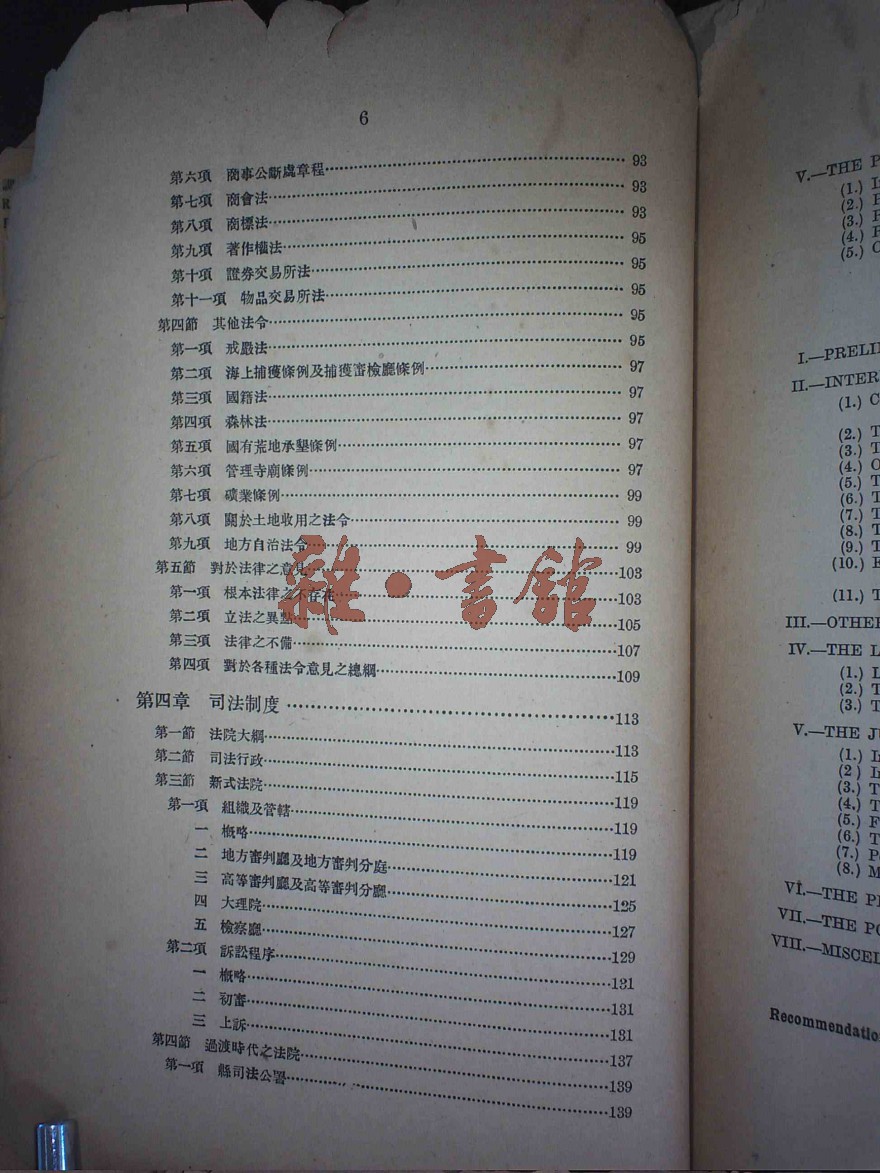 6
第六項 商事公斷處章程……93
第七項 商會法……93
第八項 商標法……93
第九項 著作權法……95
第十項 證券交易所法……95
第十一項 物品交易所法……95
第四節 其他法令……95
第一項 戒嚴法……95
第二項 海上捕獲條例及捕獲審檢廳條例……97
第三項 國籍法……97
第四項 森林法……97
第五項 國有荒地承墾條例……97
第六項 管理寺廟條例……97
第七項 礦業條例……99
第八項 關於土地收用之法令……99
第九項 地方自治法令……99
第五節 對於法律之意見……103
第一項 根本法律之不存在……103
第二項 立法之異點……105
第三項 法律之不備……107
第四項 對於各種法令意見之總綱……109
第四章 司法制度……113
第一節 法院大綱……113
第二節 司法行政……115
第三節 新式法院……119
第一項 組織及管轄……119
一 概略……119
二 地方審判廳及地方審判分庭……121
三 高等審判廳及高等審判分廳……125
四 大理院……127
五 檢察廳……129
第二項 訴訟程序……131
一 概略……131
二 初審……131
三 上訴……137
第四節 過渡時代之法院……139
第一項 縣司法公署……139
雜·書館
V.—THE P
(1.) I
(2.)
(3.)
(4.)
(5.) C
I.—PRELI
II.—INTER
(1.) C
(2.) T
(3.) T
(4.) O
(5.) T
(6.) T
(7.) T
(8.) T
(9.) T
(10.) E
(11.) T
III.—OTHER
IV.—THE L
(1.) L
(2.) T
(3.) T
V.—THE JU
(1.) I
(2) I
(3.) T
(4.) T
(5.) F
(6.) T
(7.) P
(8.) M
VI.—THE P
VII.—THE PO
VIII.—MISCEL
Recommendatio